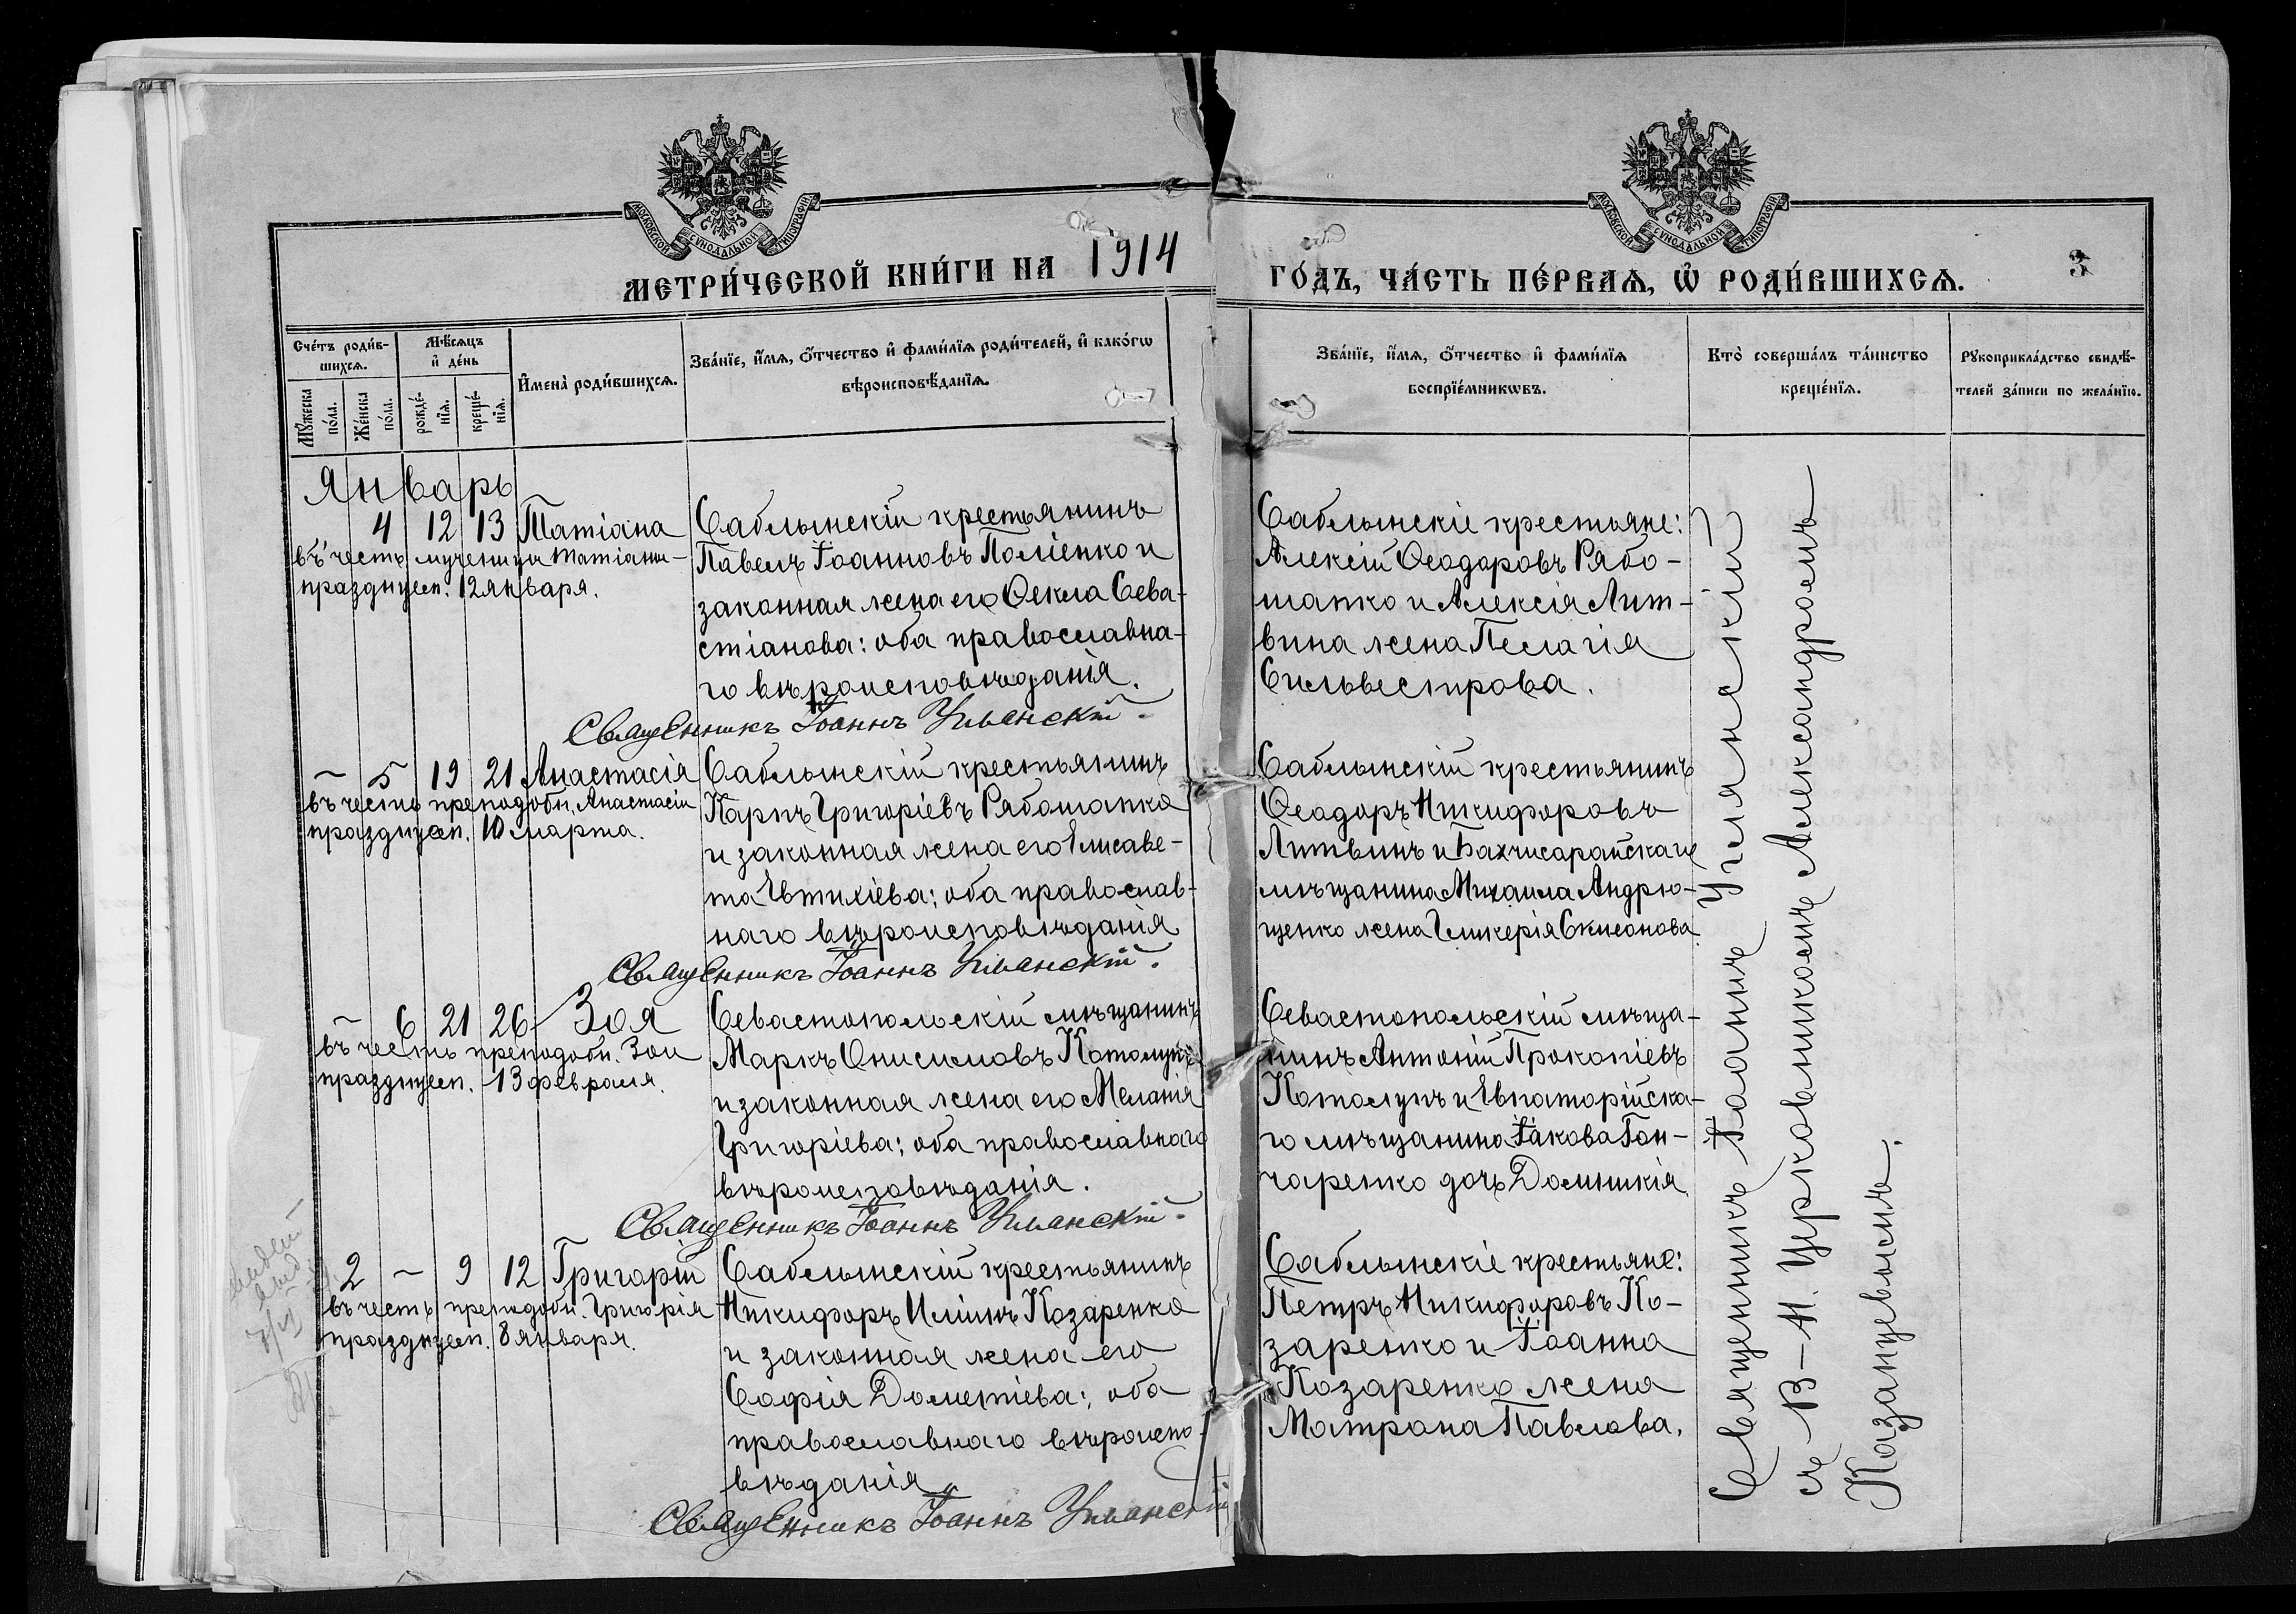 МОСКОВСКОЙ СѴНОДАЛЬНОЙ ТИПОГРАФІИ
МОСКОВСКОЙ СѴНОДАЛЬНОЙ ТИПОГРАФІИ
МЕТРИ́ЧЕСКОЙ КНИ́ГИ НА 1914
ГО́ДЪ, ЧА́СТЬ ПЕ́РВАѦ, Ѡ҆ РОДИ́ВШИХСѦ.
3
Сче́тъ роди́в-
шихсѧ.
Мꙋ́жеска
по́ла.
Же́нска
по́ла.
Мѣ́сѧцъ
и҆ де́нь
рожде́-
нїѧ.
креще́-
нїѧ.
И҆мена̀ роди́вшихсѧ.
Зва́нїе, и҆́мѧ, ѻ҆́тчество и҆ фами́лїѧ роди́телей, и҆ како́гѡ
вѣроисповѣ́данїѧ.
Зва́нїе, и҆́мѧ, ѻ҆́тчество и҆ фами́лїѧ
воспрїе́мникѡвъ.
Кто̀ соверша́лъ та́инство
креще́нїѧ.
Рꙋкоприкла́дство свидѣ́-
телей за́писи по жела́нїю.
Январь
4 12 13 Татіана
въ честь мученицы Татіаны
празднуем. 12 января.
Саблынскій крестьянинъ
Павелъ Іоанновъ Поліенко и
законная жена его Ѳекла Сева-
стіанова: оба православна-
го вѣроисповѣданія.
Саблынскіе крестьяне:
Алексій Ѳеодоровъ Рябо-
шапко и Алексія Лит-
вина жена Пелагія
Сильвестрова.
Священникъ Іоаннъ Углянскій.
– 5 19 21 Анастасія
въ честь преподобн. Анастасіи
празднуем. 10 марта.
Саблынскій крестьянинъ
Карпъ Григоріевъ Рябошапка
и законная жена его Елисаве-
та Евтихіева; оба православ-
наго вѣроисповѣданія
Саблынскій крестьянинъ
Ѳеодоръ Никифоровъ
Литвинъ и Бахчисарайскаго
мѣщанина Михаила Андрю-
щенко жена Гликерія Симеонова.
Священникъ Іоаннъ Углянскій.
– 6 21 26 Зоя
въ честь преподобн. Зои
празднуем. 13 февраля.
Севастопольскій мѣщанинъ
Маркъ Онисимовъ Котолупъ
и законная жена его Меланія
Григоріева; оба православнаго
вѣроисповѣданія.
Севастопольскій мѣща-
нинъ Антоній Прокопіевъ
Котолупъ и Евпаторійска-
го мѣщанина Іакова Гон-
чаренко дочь Домникія.
Священникъ Іоаннъ Углянскій.
2 – 9 12 Григорій
въ честь преподобн. Григорія
празднуем. 8 января.
Саблынскій крестьянинъ
Никифоръ Иліинъ Козаренко
и законная жена его
Софія Дометіева; оба
православнаго вѣроиспо-
вѣданія.
Саблынскіе крестьяне:
Петръ Никифоровъ Ко-
заренко и Іоанна
Козаренко жена
Матрона Павлова.
Священникъ Іоаннъ Углянскій
Священникъ Іоаннъ Углянскій
съ В-И. Церковникомъ Александромъ
Казанцевымъ.